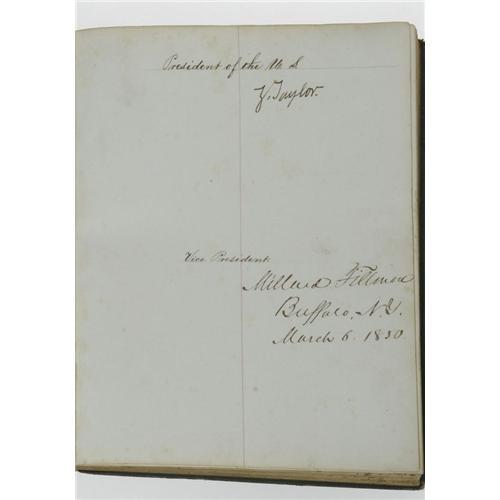 President of the U S
Z. Taylor.
Vice President
Millard Fillmore
Buffalo, N.Y.
March 6. 1850